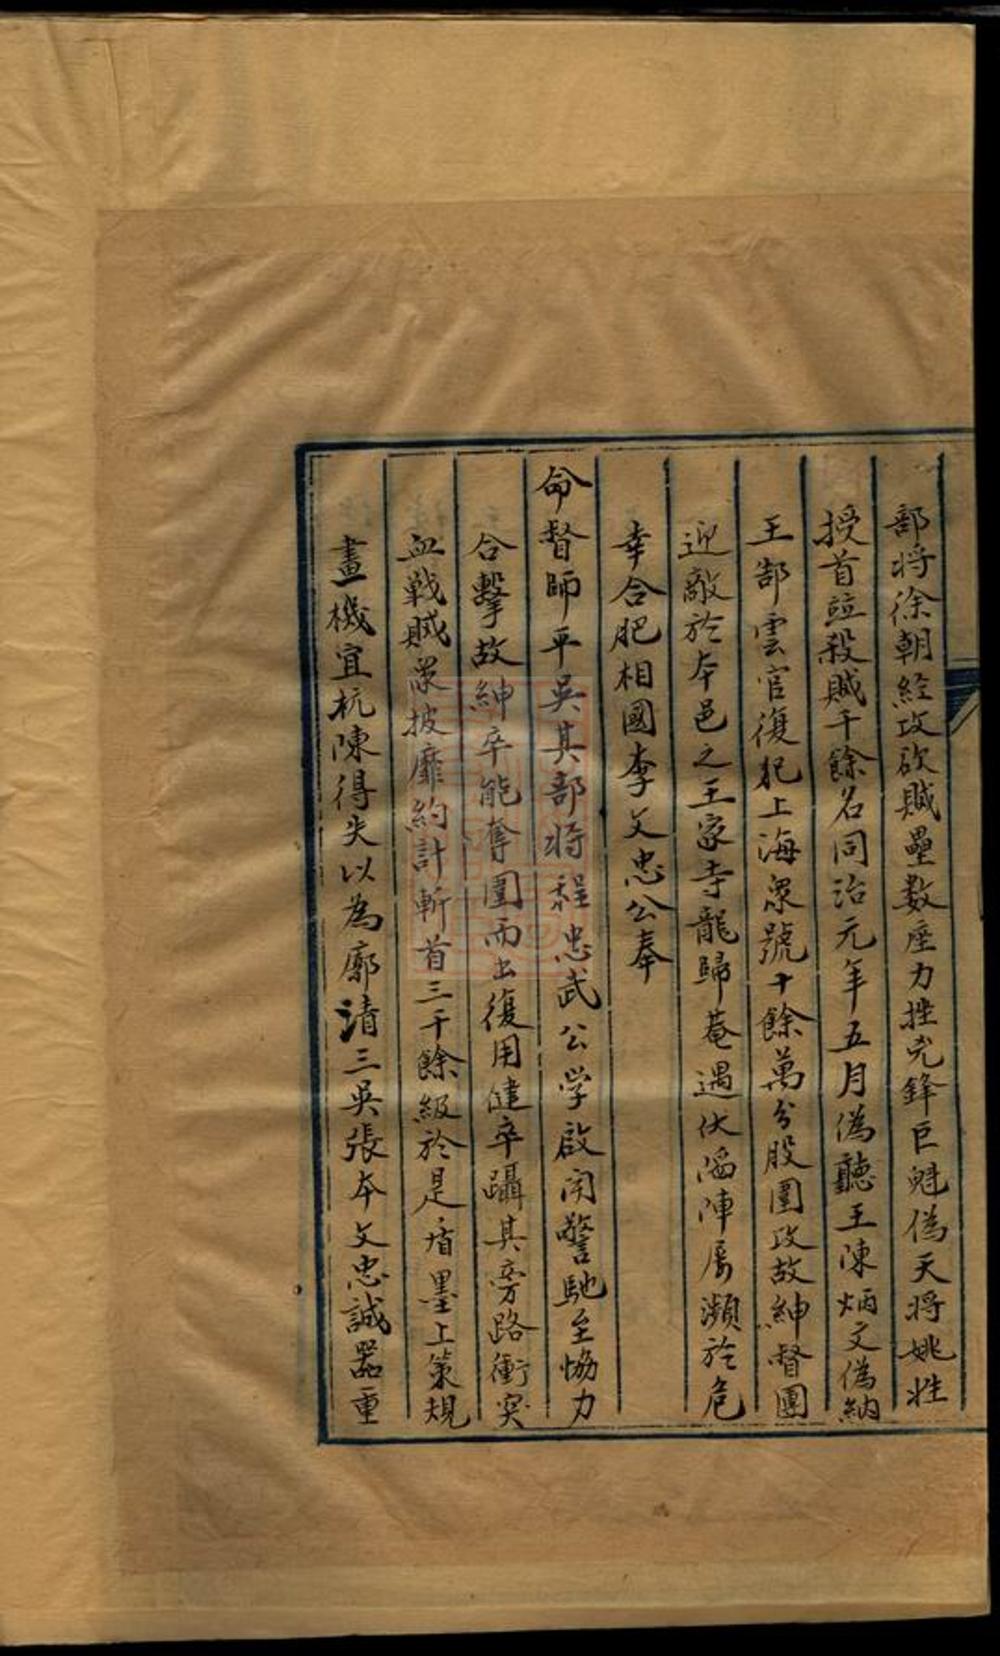 部将徐朝經攻砍賊壘數座力挫兇鋒巨魁偽天将姚姓
授首竝殺賊千餘名同治元年五月偽聽王陳炳文偽納
王郜雲官復犯上海眾號十餘萬分股圍攻故紳督團
迎敵於本邑之王家寺龍歸菴遇伏滔陣屢瀕於危
幸合肥相國李文忠公奉
命督師平吳其部将程忠武公学啟闻警馳至恊力
合擊故紳卒能奪圍而出復用健卒躡其旁路衝突
血戰賊眾披靡約計斬首三千餘級於是盾墨上策規
畫機宜杭陳得失以為廓清三吳張本文忠誠器重